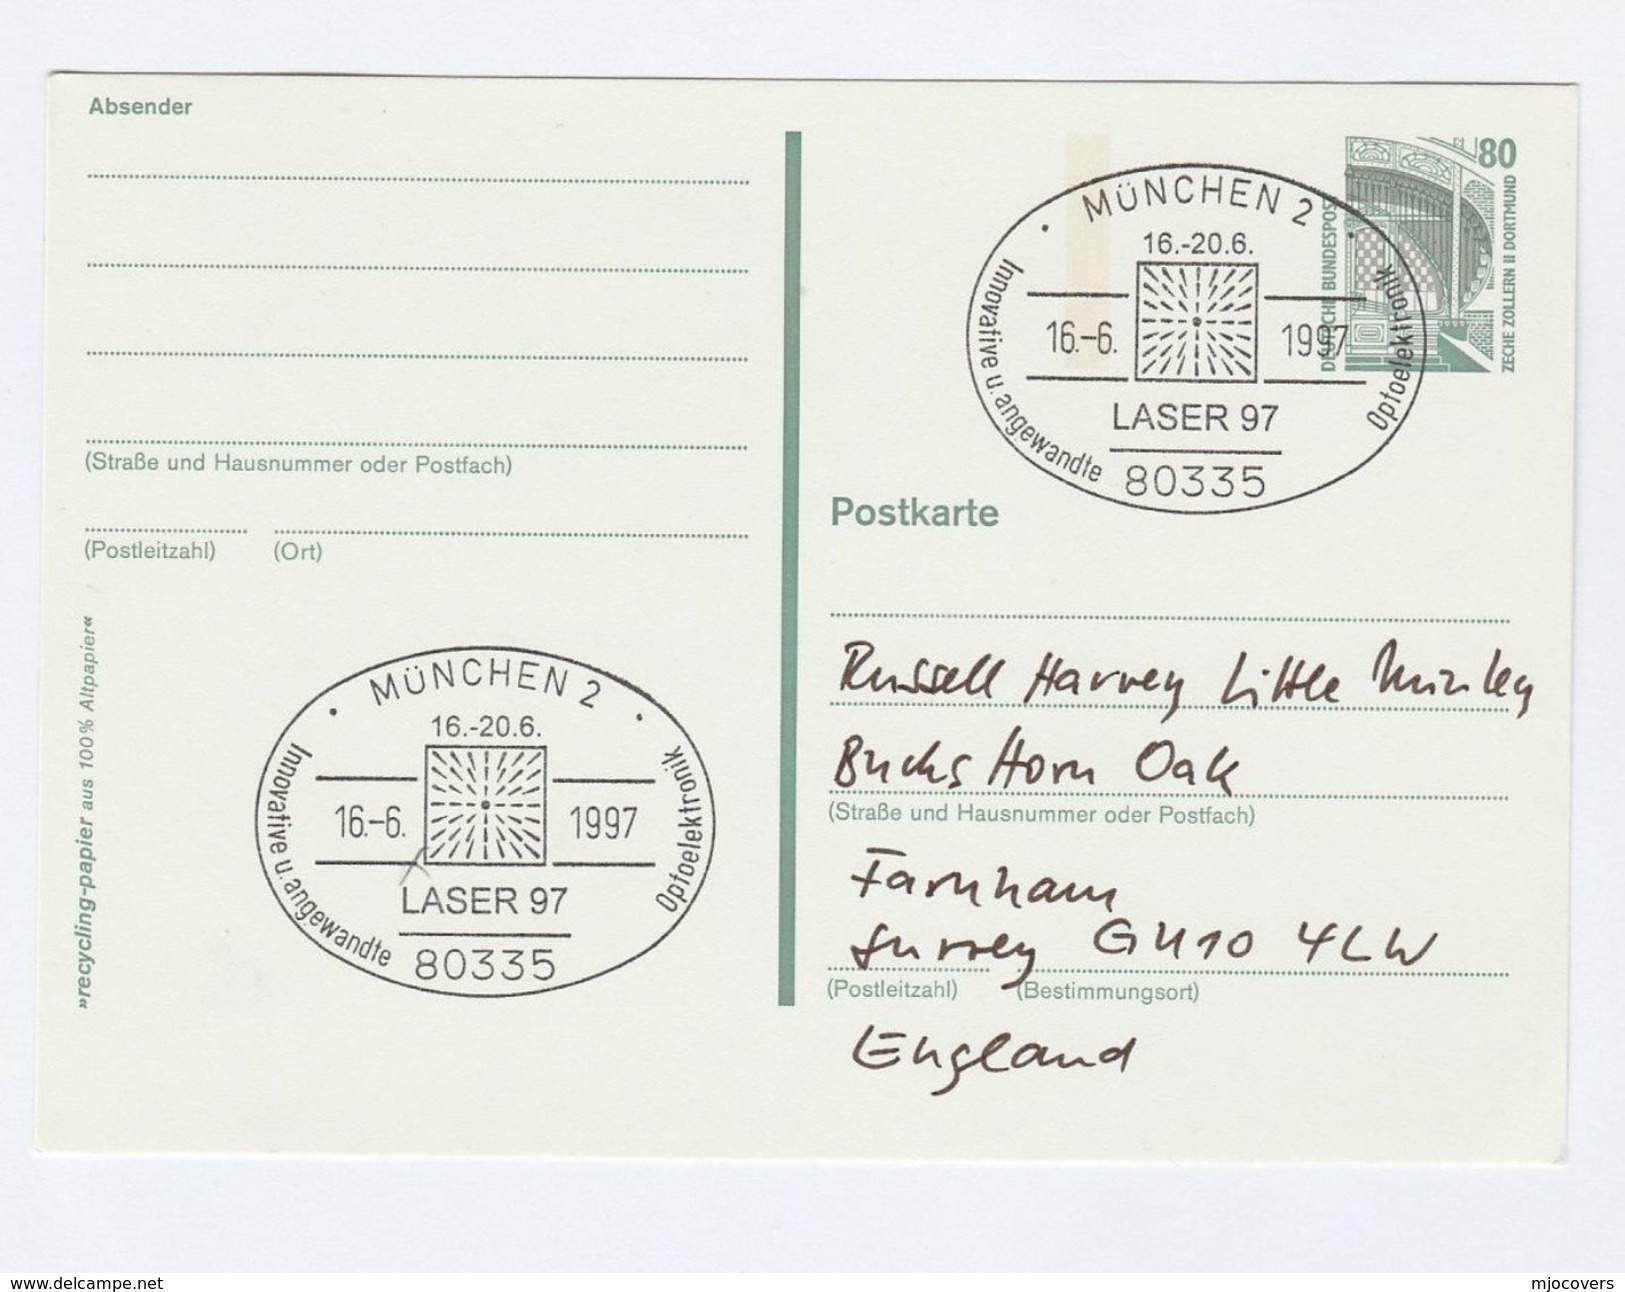 Absender
(Straße und Hausnummer oder Postfach)
(Postleitzahl) (Ort)
»recycling-papier aus 100% Altpapier«
MÜNCHEN 2
16.-20.6.
16.-6. 1997
LASER 97
Innovative u. angewandte Optoelektronik
80335
80
DEUTSCHE BUNDESPOST
ZECHE ZOLLERN II DORTMUND
MÜNCHEN 2
16.-20.6.
16.-6. 1997
LASER 97
Innovative u. angewandte Optoelektronik
80335
Postkarte
Russell Harvey Little Minley
Bucks Horn Oak
(Straße und Hausnummer oder Postfach)
Farnham
Surrey GU10 4LW
(Postleitzahl) (Bestimmungsort)
England
www.delcampe.net
mjocovers